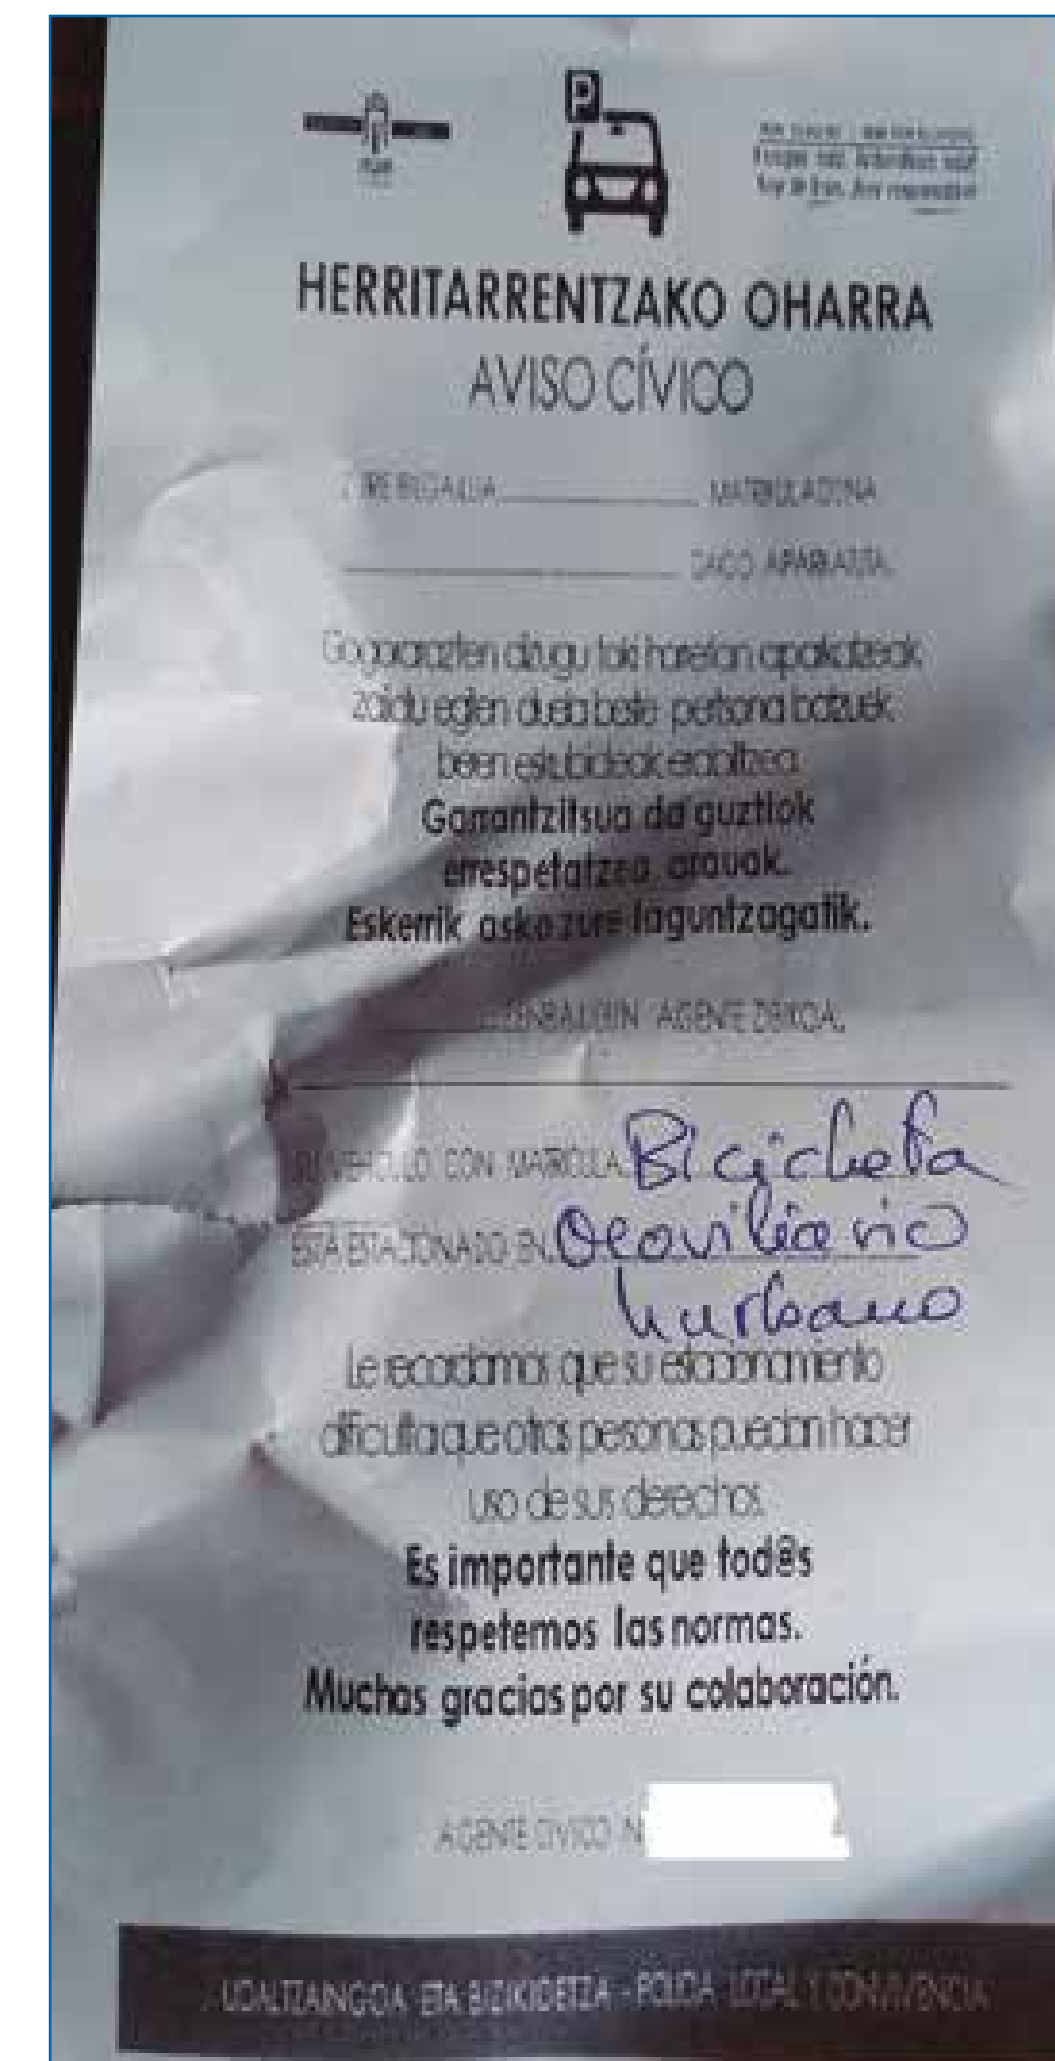 P
HERRITARRENTZAKO OHARRA
AVISO CÍVICO
ZURE IBILGAILUA MATRIKULADUNA
DAGO APARKATUTA.
Gogorarazten dizugu toki horretan aparkatzeak
zaildu egiten duela beste pertsona batzuek
beren eskubideak erabiltzea.
Garrantzitsua da guztiok
errespetatzea arauak.
Eskerrik asko zure laguntzagatik.
ZENBAKIDUN AGENTE ZIBIKOA.
SU VEHICULO CON MATRÍCULA Bicicheta
ESTÁ ESTACIONADO EN Mobiliario
hurbano
Le recordamos que su estacionamiento
dificulta que otras personas puedan hacer
uso de sus derechos.
Es importante que tod@s
respetemos las normas.
Muchas gracias por su colaboración.
AGENTE CÍVICO N
UDALTZAINGOA ETA BIZIKIDETZA - POLICIA LOCAL Y CONVIVENCIA